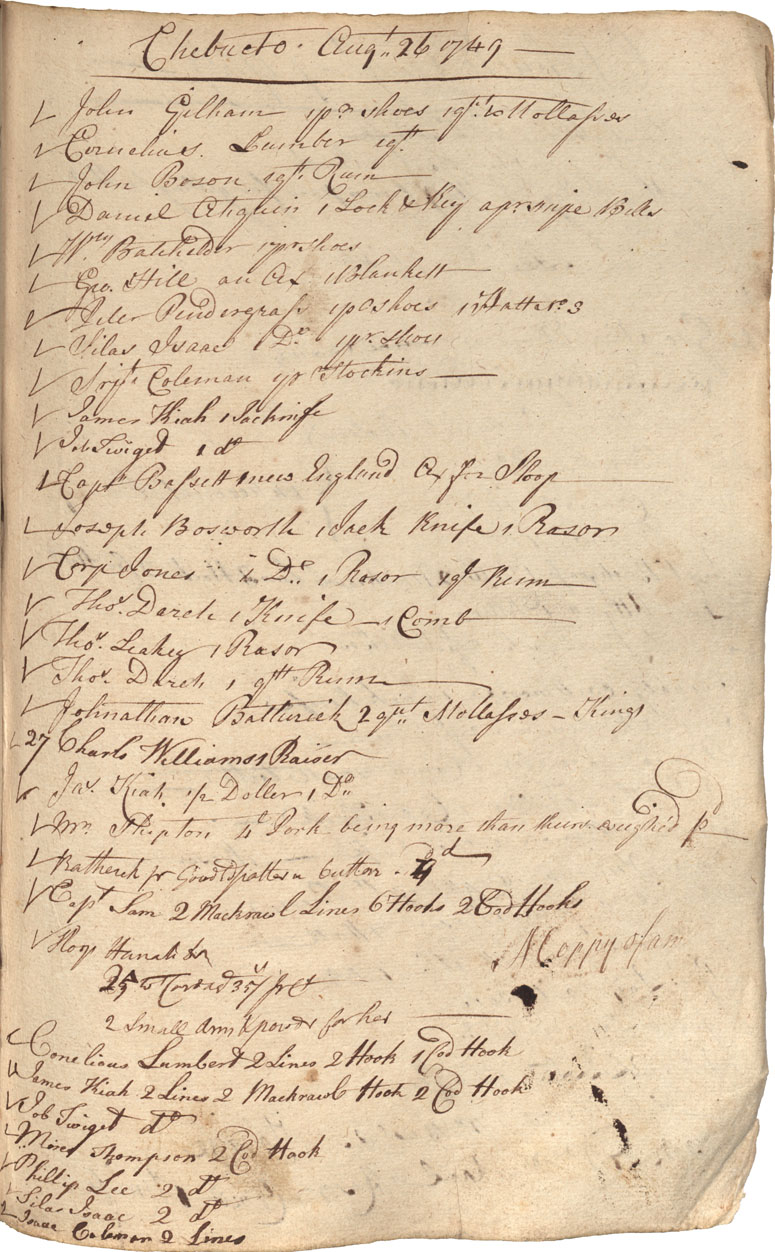 Chebucto. Augt. 26 1749
John Gilham 1 pr shoes 1 qt. Mollasses
Cornelius. Lumber 1 qt.
John Boson 1 qt. Rum
Daniel Atiquin 1 Lock & Key a pr snipe Bills
Wm. Batchelder 1 pr shoes
Geo. Hill an Ax 1 Blankett
Peter Pendergrass 1 pr shoes 1 Hatt No. 3
Silas Isaac 1 Do. 1 pr. shoes
Srjt. Coleman 1 pr Stockins
James Kiah 1 Jacknife
Job Twiget 1 do
Capt. Bassett 1 new England Ax for Sloop
Joseph Bosworth 1 Jack Knife 1 Rasor
Corp Jones 1 Do. 1 Rasor 1 qt Rum
Thos. Darch 1 Knife 1 Comb
Thos. Leakey 1 Rasor
Thos. Darch 1 qtt Rum
Johnathan Batterick 2 qt. Mollasses - Kings
27 Charls Williams 1 Raiser
Jas. Kiah 1/2 Doller 1 Do.
Mr. Skipton 4 Pork being more than theirs weigh'd pd
butter
Capt Sam 2 Mackrawl Lines 6 Hooks 2 Cod Hooks
Hanah
A Coppy of am
2 Small Arm & powdr for her
Cornelious Lumbert 2 Lines 2 Hook 1 Cod Hook
James Kiah 2 Lines 2 Mackrawl Hook 2 Cod Hook
Job Twiget do
Moses Thompson 2 Cod Hook
Phillip Lee 2 do
Silas Isaac 2 do
Isaac Coleman 2 Lines